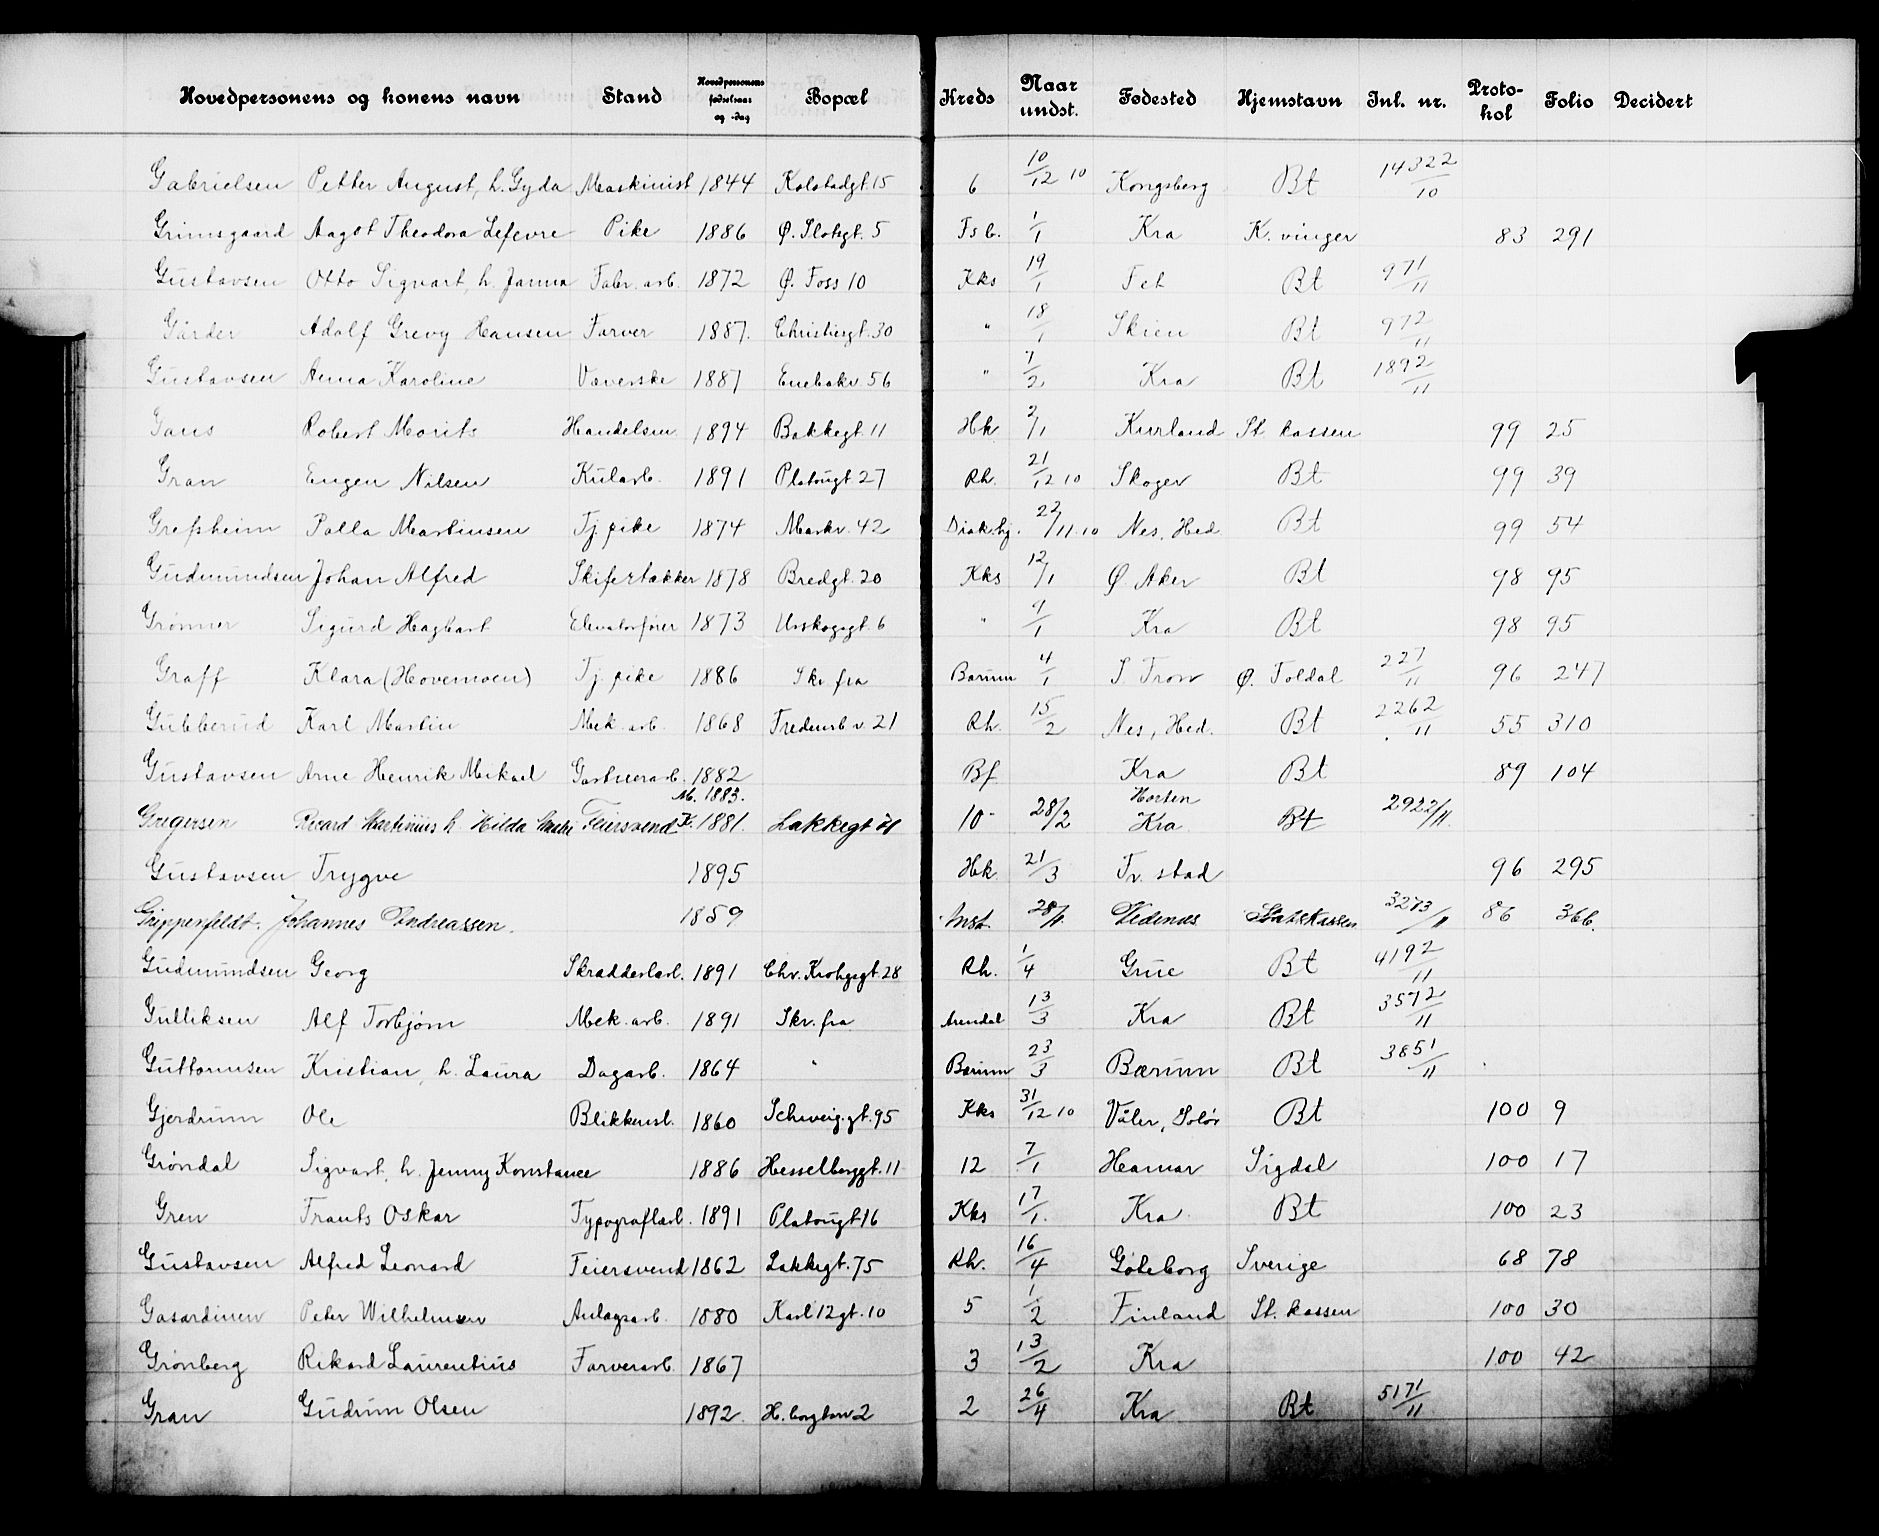 Hovedpersonens og konens navn | Stand | Hovedpersonens fødselsaar og -dag | Bopæl | Kreds | Naar undst. | Fødested | Hjemstavn | Inl. nr. | Protokol | Folio | Decidert
Gabrielsen Petter August, h. Gyda Maskinist 1844 Kolstadgt. 15 6 10/12 10 Kongsberg Bt 14322/10
Grimsgaard Aagot Theodora Lefevre Pike 1886 Ø. Slotsgt. 5 Fsb. 1/1 Kra K. vinger 83 291
Gustavsen Otto Sigvart, h. Janna Fabr. arb. 1872 Ø. Foss 10 Kks 19/1 Fet Bt 971/11
Gårder Adolf Grevy Hansen Farver 1887. Christiesgt. 30 " 18/1 Skien Bt 972/11
Gustavsen Anna Karoline Væverske 1887 Enebakv. 56 " 7/2 Kra Bt 1892/11
Gans Robert Morits Handelsm. 1894 Bakkegt. 11 Hk 2/1 Kurland St. kassen 99 25
Gran Eugen Nilsen Kularb. 1891 Platougt 27 Rh. 21/12 10 Skoger Bt 99 39
Grefsheim Palla Martinsen Tj. pike 1874 Markv. 42 Diak.hj. 22/11 10 Nes, Hed Bt 99 54
Gudmundsen Johan Alfred Skifertækker 1878 Bredgt. 20 Kks 12/1 Ø. Aker Bt 98 95
Grønner Sigurd Hagbart Elevatorfører 1873 Urskogsgt. 6 " 9/1 Kra Bt 98 95
Graff Klara (Hovemoen) Tj. pike 1886 Skr. fra Bærum 4/1 S. Fron Ø. Foldal 227/11 96 247
Gubberud Karl Martin Mek. arb. 1868 Fredensb v. 21 Rh. 15/2 Nes, Hed. Bt 2262/11 55 310
Gustavsen Arne Henrik Mikael Gartnerarb. 1882 Bf Kra Bt 89 104
Gregersen Ricard Martinius h. Hilda Feiersvend M. 1883. K. 1881. Lakkegt 71 10 28/2 Horten Kra Bt 2922/11.
Gustavsen Trygve 1895 Hk. 21/3 Fr. stad 96 295
Grippenfeldt. Johannes Andreassen. 1859 Mst. 28/1 Dedenæs Statskassen 3273/11 86 366.
Gudmundsen Georg Skrædderarb. 1891 Chr. Krohgsgt. 28 Rh. 1/4 Grue Bt 4192/11
Gulliksen Alf Torbjørn Mek. arb. 1891 Skr. fra Arendal 13/3 Kra Bt 3572/11
Guttormsen Kristian, h. Laura Dagarb. 1864 " Bærum 23/3 Bærum Bt 3851/11
Gjerdrum Ole Blikkensl. 1860 Schweig.gt. 95 Kks 31/12 10 Våler, Solør Bt 100 9
Grøndal Sigvart, h. Jenny Konstance 1886 Hesselberggt. 11 12 7/1 Hamar Sigdal 100 17
Gren Frants Oskar Typografarb. 1891 Platougt 16 Kks 17/1. Kra Bt 100 23
Gustavsen Alfred Leonard Feiersvend 1862 Lakkegt. 75 Rh. 16/4 Gøteborg Sverige 68 78
Gasardinen Peter Wilhelmsen Anlægsarb. 1880 Karl 12 gt. 10 5 1/2 Finland St. kassen 100 30
Grønberg Rikard Laurentius Farverarb. 1867 3 13/2 Kra 100 42
Gran Gudrun Olsen 1892. 2 2 26/4 Kra Bt 5171/11